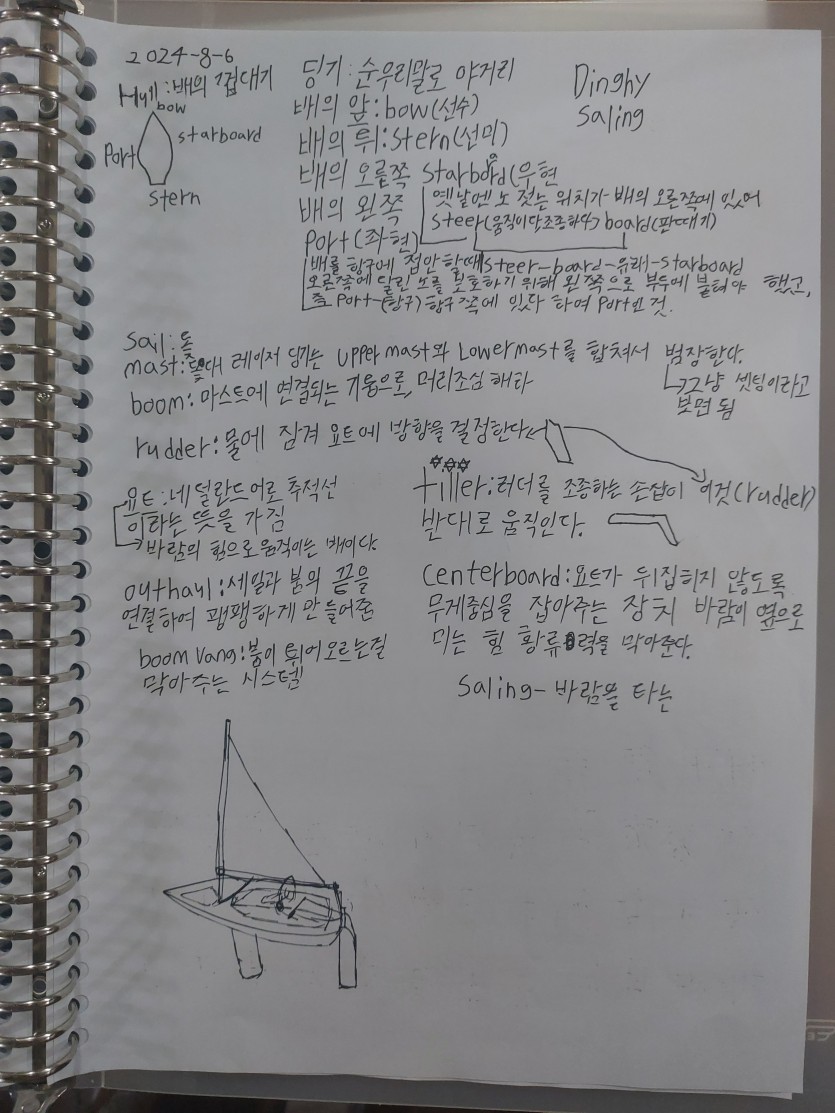 2024-8-6
Hull:배의 껍대기
bow
Port
starboard
stern
딩기:순우리말로 야거리
Dinghy
Saling
배의 앞:bow(선수)
배의 뒤:stern(선미)
배의 오른쪽 starbord(우현
a
옛날엔 노 젓는 위치가 배의 오른쪽에 있어
steer(움직이다 조종하다) board(판때기)
steer-board-유래-starboard
배의 왼쪽
Port(좌현)
배를 항구에 접안 할때
오른쪽에 달린 노를 보호하기 위해 왼쪽으로 부두에 붙혀야 했고,
즉 Port-(항구) 항구쪽에 있다 하여 Port인 것.
sail:돛
mast:돛대 레이저 딩기는 upper mast와 Lower mast를 합쳐서 범장한다.
그냥 셋팅이라고
보면 됨
boom:마스트에 연결되는 기둥으로, 머리조심 해라
rudder:물에 잠겨 요트에 방향을 결정한다
요트:네덜란드어로 추적선
이라는 뜻을 가짐
바람의 힘으로 움직이는 배이다.
tiller:러더를 조종하는 손잡이 이것(rudder)
반대로 움직인다.
outhaul:세일과 붐의 끝을
연결하여 팽팽하게 만들어준
centerboard:요트가 뒤집히지 않도록
무게중심을 잡아주는 장치 바람이 옆으로
미는 힘 횡류력을 막아준다.
boom vang:붐이 튀어오르는걸
막아주는 시스템
Saling-바람을 타는